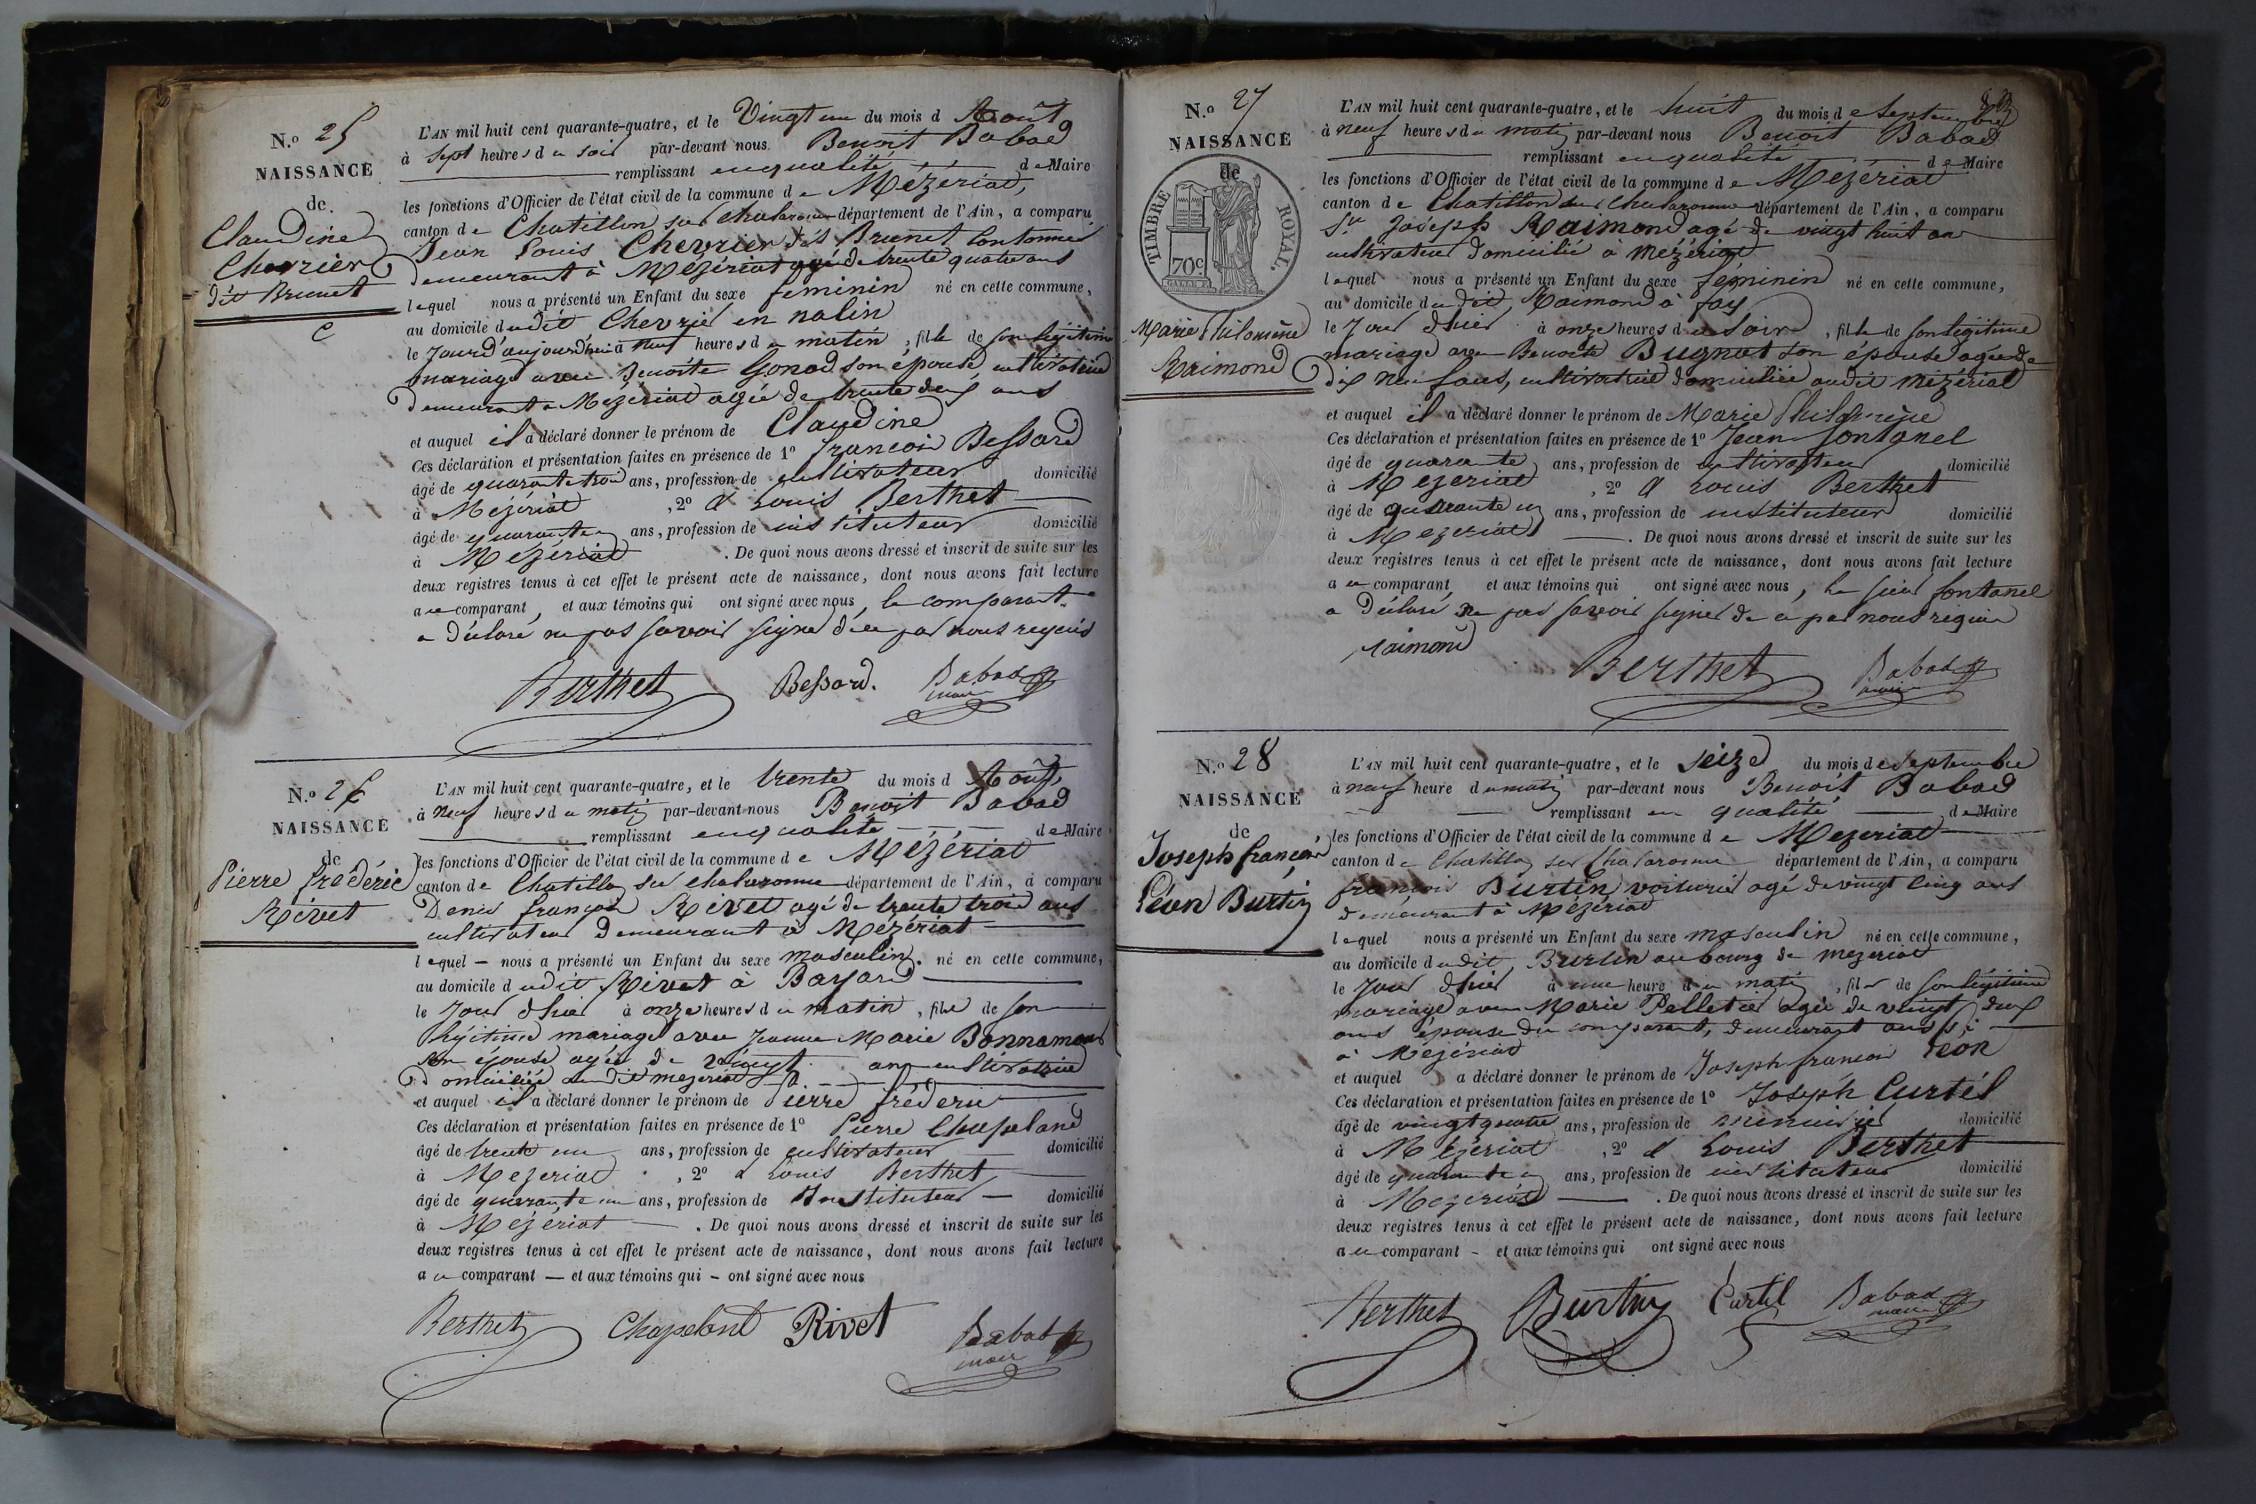 N.o 25
NAISSANCE
de
Claudine
Chevrier
dit Brunet
L'AN mil huit cent quarante-quatre, et le Vingt un du mois d Août
à sept heures du soir par-devant nous Benoit Babad
remplissant en qualité de Maire
les fonctions d'Officier de l'état civil de la commune de Mézériat,
canton de Chatillon sur Chalaronne département de l'Ain, a comparu
Jean Louis Chevrier dit Brunet
demeurant à Mézériat agé de trente quatre ans
lequel nous a présenté un Enfant du sexe feminin né en cette commune,
au domicile dudit Chevrier en nalin
le Jour d'aujourd'hui à neuf heures du matin, fille de son légitime
mariage avec Benoite Gonod son épouse cultivatrice
demeurant a Mezériat agée de trente deux ans
et auquel il a déclaré donner le prénom de Claudine
Ces déclaration et présentation faites en présence de 1o francois Bessard
âgé de quarante trois ans, profession de cultivateur domicilié
à Mézériat, 2o & Louis Berthet
âgé de quarante un ans, profession de instituteur domicilié
à Mézériat. De quoi nous avons dressé et inscrit de suite sur les
deux registres tenus à cet effet le présent acte de naissance, dont nous avons fait lecture
au comparant, et aux témoins qui ont signé avec nous, le comparant
a déclaré ne pas savoir signer de ce par nous requis
Berthet Bessard. Babad
maire
N.o 26
NAISSANCE
de
Pierre frédéric
Rivet
L'AN mil huit cent quarante-quatre, et le trente du mois d Août,
à neuf heures du matin par-devant nous Benoit Babad
remplissant en qualité de Maire
les fonctions d'Officier de l'état civil de la commune de Mézériat
canton de Chatillon sur chalaronne département de l'Ain, a comparu
Denis françois Rivet agé de trente trois ans
cultivateur demeurant à Mézériat
lequel nous a présenté un Enfant du sexe masculin né en cette commune,
au domicile dudit Rivet à Bayard
le Jour d'hier à onze heures du matin, fils de son
légitime mariage avec Jeanne Marie Bonnamour
son épouse agée de vingt ans cultivatrice
domiciliée audit mezeriat
et auquel il a déclaré donner le prénom de Pierre fréderic
Ces déclaration et présentation faites en présence de 1o Pierre Chapeland
âgé de trente un ans, profession de cultivateur domicilié
à Mezeriat, 2o & Louis Berthet
âgé de quarante un ans, profession de Instituteur domicilié
à Mézériat. De quoi nous avons dressé et inscrit de suite sur les
deux registres tenus à cet effet le présent acte de naissance, dont nous avons fait lecture
au comparant et aux témoins qui ont signé avec nous
Berthet Chapeland Rivet Babad
maire
N.o 27
NAISSANCE
de
TIMBRE ROYAL.
70c
Marie Philomène
Raimond
L'AN mil huit cent quarante-quatre, et le huit du mois de Septembre
à neuf heures du matin par-devant nous Benoit Babad
remplissant en qualité de Maire
les fonctions d'Officier de l'état civil de la commune de Mezériat
canton de Chatillon sur Chalaronne département de l'Ain, a comparu
Sr Joseph Raimond agé de vingt huit ans
cultivateur domicilié à Mezériat
lequel nous a présenté un Enfant du sexe féminin né en cette commune,
au domicile dudit Raimond à fay
le Jour d'hier à onze heures du soir, fille de son légitime
mariage avec Benoite Bugnot son épouse agée de
dix neuf ans, cultivatrice domiciliée audit Mézériat
et auquel il a déclaré donner le prénom de Marie Philomène
Ces déclaration et présentation faites en présence de 1o Jean fontanel
âgé de quarante ans, profession de cultivateur domicilié
à Mezeriat, 2o & Louis Berthet
âgé de quarante un ans, profession de instituteur domicilié
à Mezeriat. De quoi nous avons dressé et inscrit de suite sur les
deux registres tenus à cet effet le présent acte de naissance, dont nous avons fait lecture
au comparant et aux témoins qui ont signé avec nous, le sieur fontanel
a déclaré ne pas savoir signer de ce par nous requis
raimond
Berthet Babad
maire
N.o 28
NAISSANCE
de
Joseph françois
Léon Burtin
L'AN mil huit cent quarante-quatre, et le seize du mois de septembre
à neuf heure du matin par-devant nous Benoit Babad
remplissant en qualité de Maire
les fonctions d'Officier de l'état civil de la commune de Mezeriat
canton de Chatillon sur Chalaronne département de l'Ain, a comparu
françois Burtin voiturier agé de vingt cinq ans
demeurant à Mézériat
lequel nous a présenté un Enfant du sexe masculin né en cette commune,
au domicile dudit Burtin au bourg de mezeriat
le Jour d'hier à une heure du matin, fils de son légitime
mariage avec Marie Pelletier agée de vingt deux
ans épouse du comparant, demeurant aussi
à Mézériat
et auquel a déclaré donner le prénom de Joseph françois Léon
Ces déclaration et présentation faites en présence de 1o Joseph Curtil
âgé de vingt quatre ans, profession de menuisier domicilié
à Mézériat, 2o & Louis Berthet
âgé de quarante un ans, profession de instituteur domicilié
à Mezeriat. De quoi nous avons dressé et inscrit de suite sur les
deux registres tenus à cet effet le présent acte de naissance, dont nous avons fait lecture
au comparant et aux témoins qui ont signé avec nous
Berthet Burtin Curtil Babad
maire